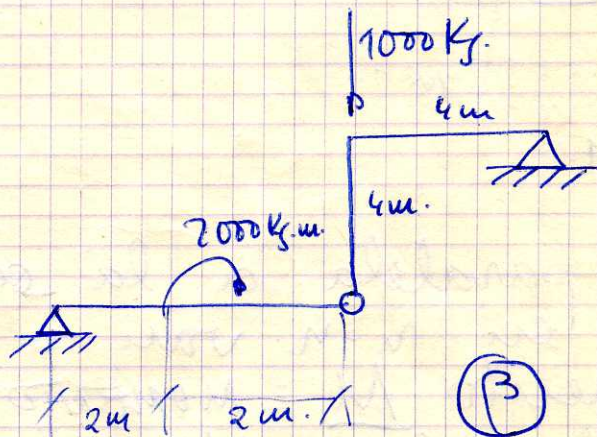 1000 Kg.
4m
4m.
2000 Kg.m.
2m 2m.
β